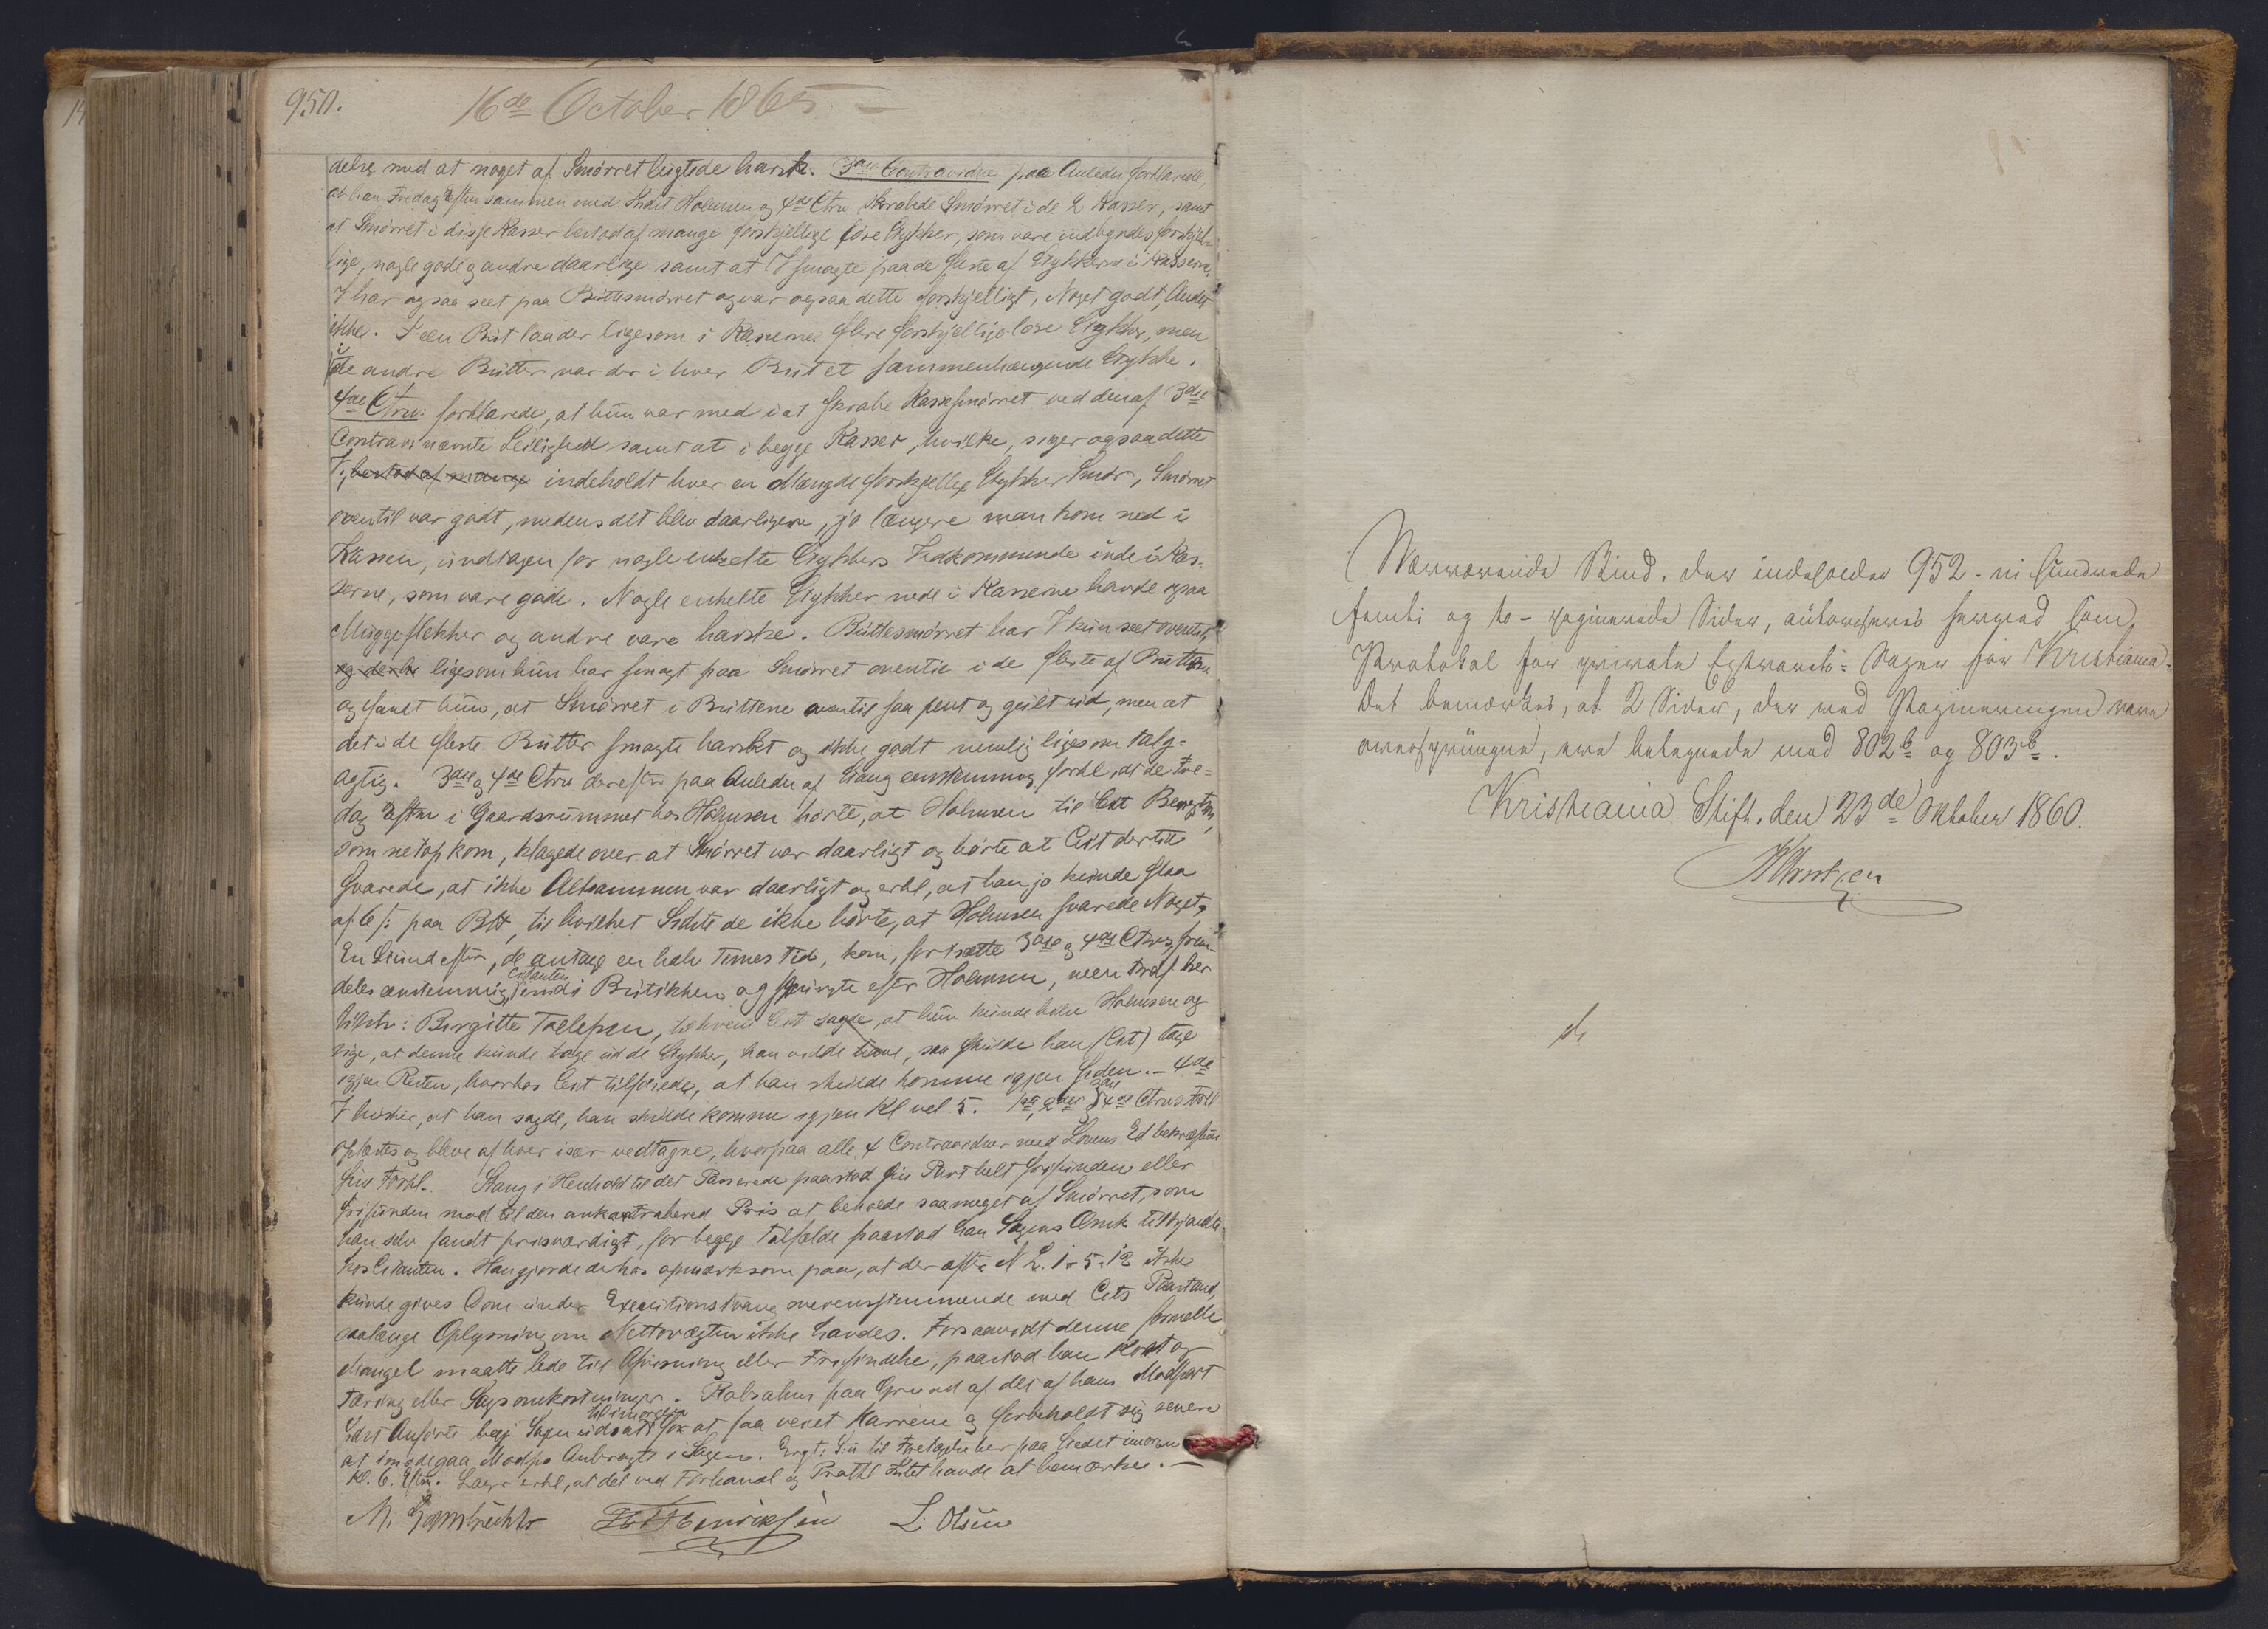 950.
16de October 1865
delse med at noget af Smørret lugtede harsk. 3die Contravidne paa Anledn forklarede,
at han Fredag Aften sammen med Holmsen og 4de Ctrv skrabede Smørret i de 2 Kasser, samt
at Smørret i disse Kasser bestod af mange forskjellige løse Stykker, som vare indbyrdes forskjel-
lige, nogle gode og andre daarlige samt at V smagte paa de fleste af Stykkerne i Kasserne.
V har ogsaa seet paa Büttesmørret og var ogsaa dette forskjelligt, Noget godt, Andet
ikke. I een Büt laa der ligesom i Kasserne flere forskjellige løse Stykker, men
i de andre Bütter var der i hver Büt et sammenhængende Stykke.
4de Ctrv: forklarede, at hun var med i at skrabe Kassesmørret ved den af 3die
Contrav: nævnte Leilighed samt at i begge Kasser, hvilke, siger ogsaa dette
V, bestod af mange indeholdt hver en Mængde forskjellige Stykker Smør, Smørret
oventil var godt, medens det blev daarligere, jo længere man kom ned i
Kassen, undtagen for nogle enkelte Stykkers Vedkommende inde i Kas-
serne, som vare gode. Nogle enkelte Stykker nede i Kasserne havde ogsaa
Muggeflekker og andre vare harske. Büttesmørret har V kun seet oventil,
ligesom hun har smagt paa Smørret oventil i de fleste af Bütterne
og fandt hun, at Smørret i Büttene oventil saa pent og gult ud, men at
det i de fleste Bütter smagte harskt og ikke godt nemlig ligesom talg-
agtig. 3die og 4de Ctrv derefter paa Anledn af Stang eenstemmig forkl, at de Fre-
dag Aften i Gaardsrummet hos Holmsen hørte, at Holmsen til Cit
som netop kom, klagede over at Smørret var daarligt og hørte at Cit dertil
svarede, at ikke Altsammen var daarligt og erkl, at han jo kunde slaa
af 6 s: paa B, til hvilket Sidste de ikke hørte, at Holmsen svarede Noget.
En Stund efter, de antage en halv Times Tid, kom, fortsætte 3die og 4de Ctrv, frem-
deles eenstemmig, Citanten ind i Butikken og spurgte efter Holmsen, men traf her
Vidnet: Birgitte Tollefsen, til hvem Cit sagde, at hun kunde hilse Holmsen og
sige, at denne kunde tage ud de Stykker, han vilde have, saa skulde han (Cit) tage
igjen Resten, hvorhos Cit tilføiede, at han skulde komme igjen siden. – 4de
V husker, at han sagde, han skulde komme igjen Kl vel 5. 1ste, 2det 3die & 4de Ctrvs Forkl
oplæstes og bleve af hver især vedtagne, hvorpaa alle 4 Contravidner med Lovens Ed bekræftede
sin Forkl. Stang i Henhold til det Passerede paastod sin Part helt frifunden eller
frifunden mod til den ankontraherede Pris at beholde saameget af Smørret, som
han selv fandt prisværdigt, for begge Tilfælde paastod han Sagens Omk tilkjendte
hos Citanten. Han gjorde derhos opmærksom paa, at der efter N L. 1-5-12 ikke
kunde gives Dom under Executionstvang overensstemmende med Cits Paastand,
saalænge Oplysning om Nettovægten ikke havdes. Forsaavidt denne formelle
Mangel maatte lede til Afvisning eller Frifindelse, paastod han Kost og
Tæring eller Sagsomkostninger. paa Grund af det af hans Modpart
Sidst Anførte begj Sagen udsat til imorgen for at faa veiet Karrene og forbeholdt sig senere
at imødegaa Modps Anbragte i Sagen. Eragt: S: u til Foretagelse her paa Stedet imorgen
Kl. 6. Eftm. Lagr erkl, at det ved Forhandl og Protkl Intet havde at bemærke. –
M. Gombrücht H Henriksen L. Olsen
Nærværende Bind, der indeholder 952 - ni hundrede
femti og to - paginerede Sider, autoriseres herved som
Protokol for private Extraretts-Sager for Kristiania.
Det bemærkes, at 2 Sider, der ved Pagineringen vare
oversprungne, ere betegnede med 802b og 803b.
Kristiania Stift, den 23de Oktober 1860.